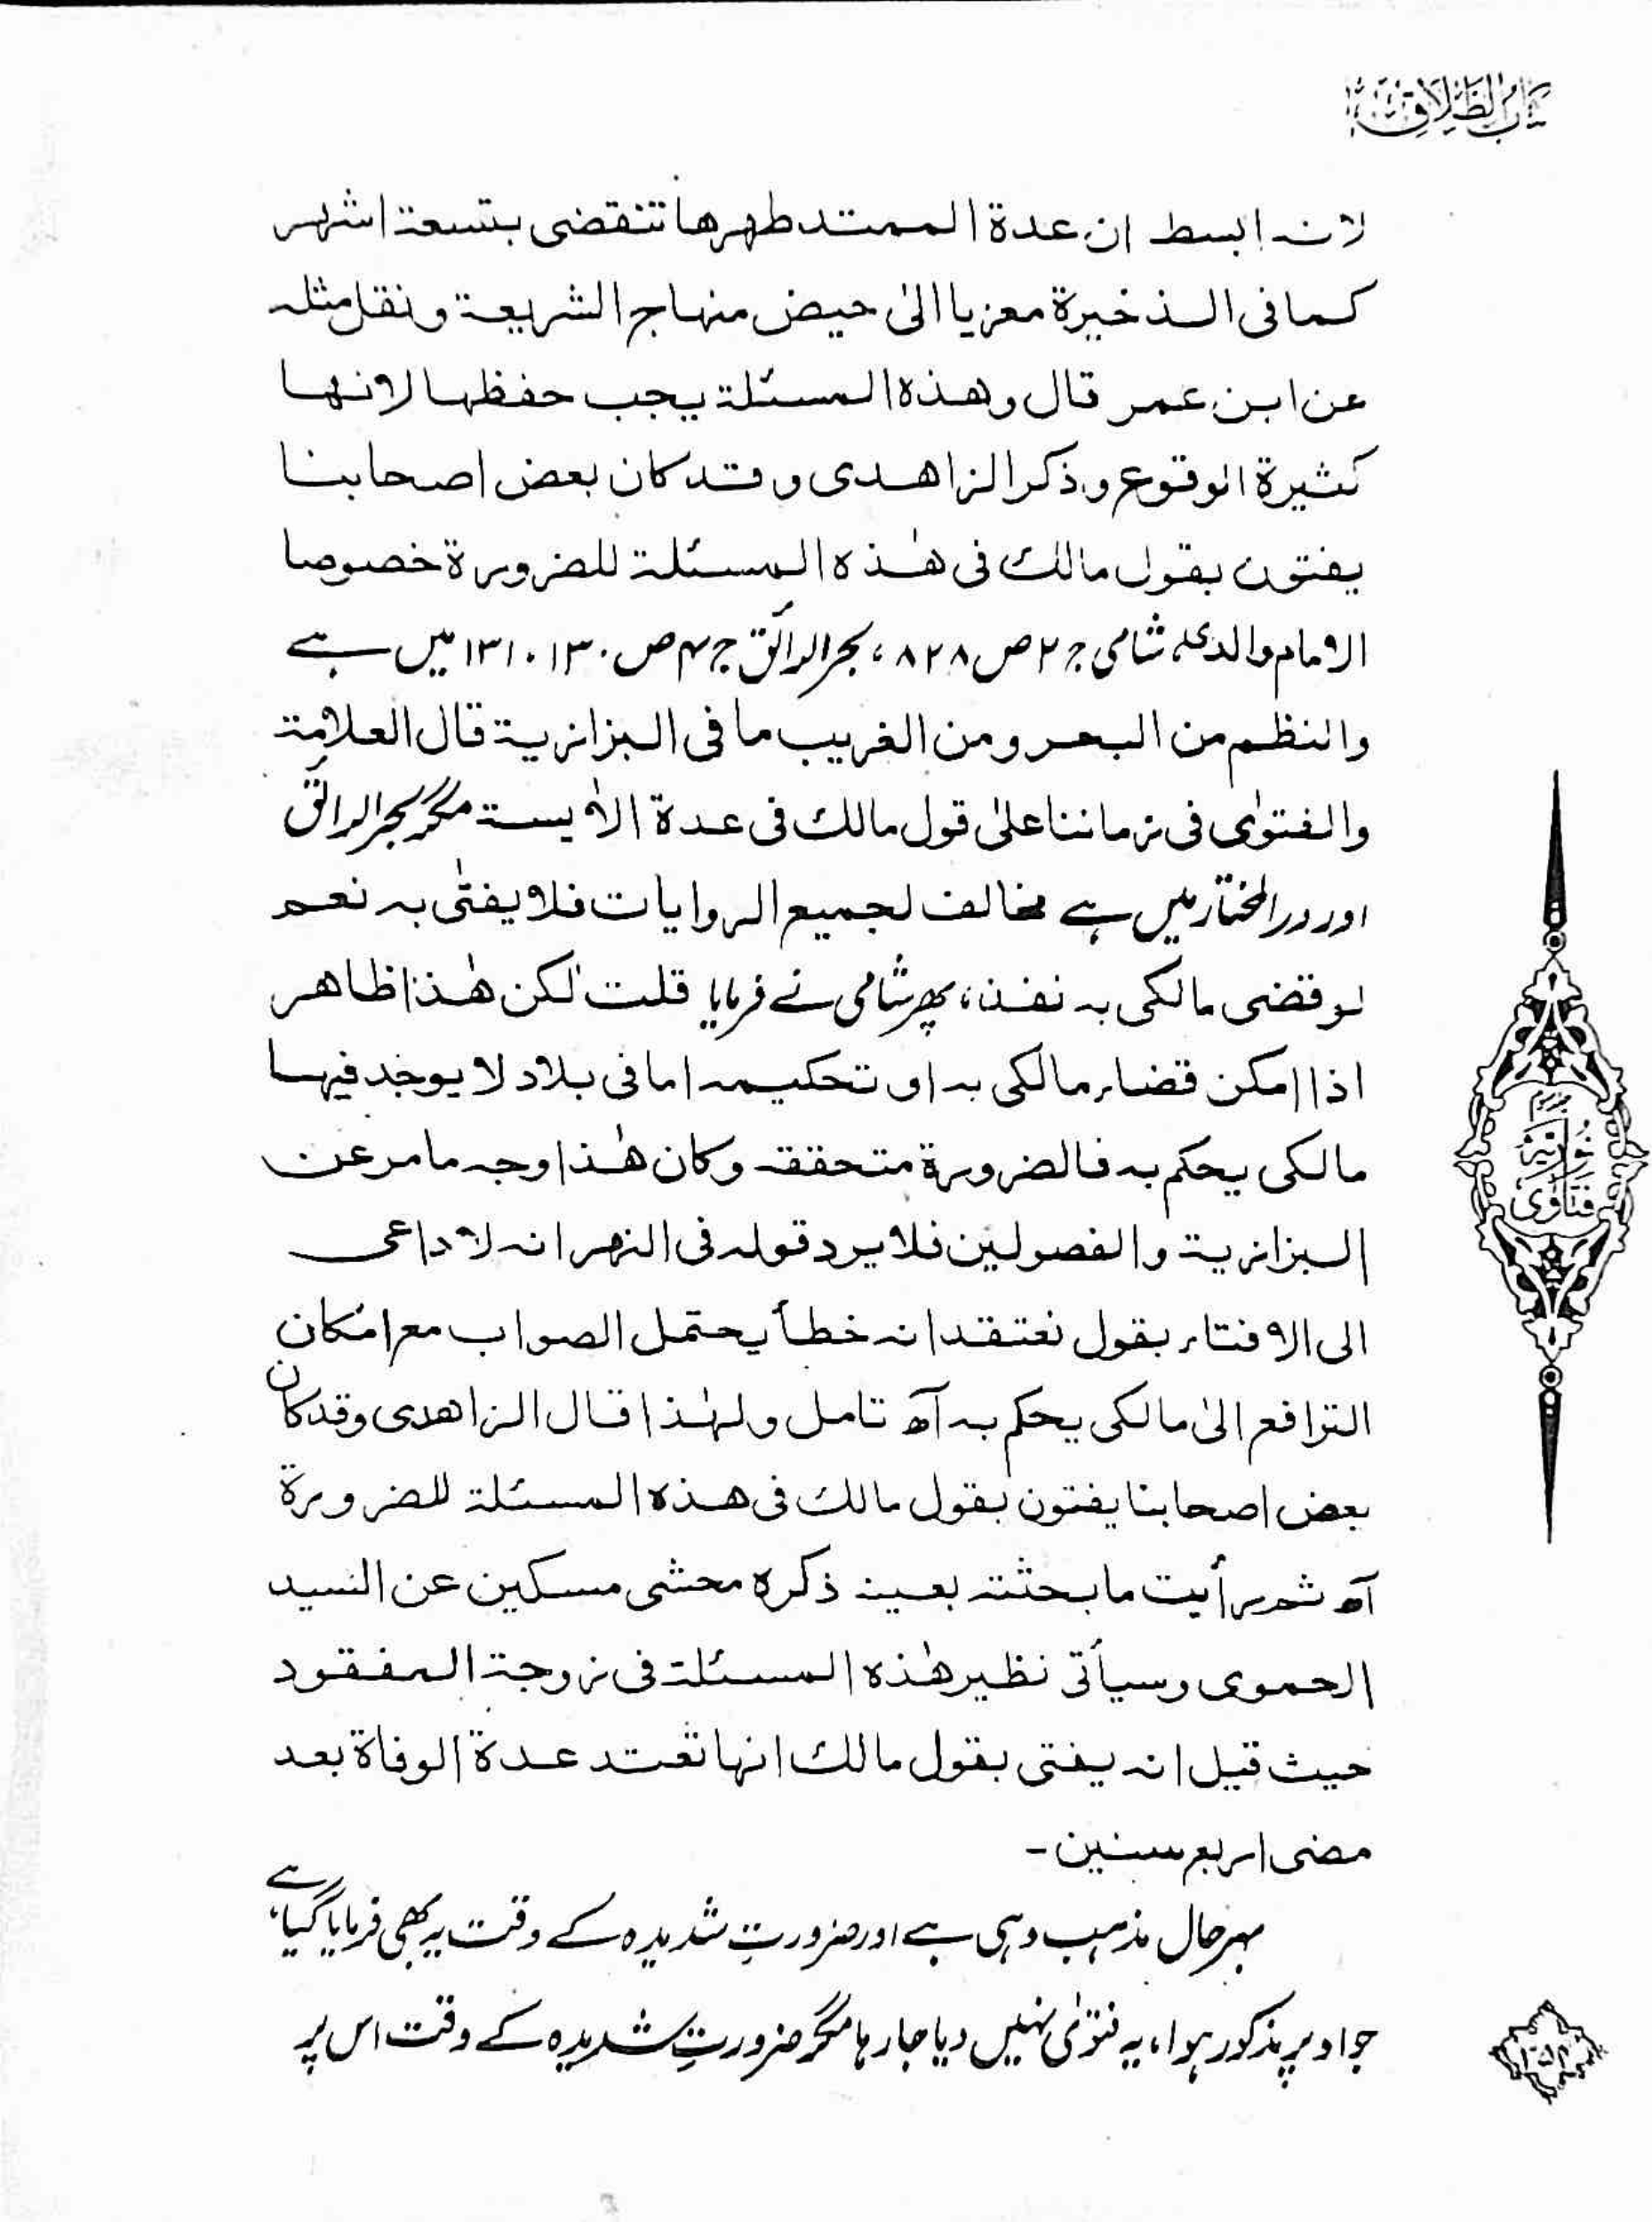 کتاب الطلاق
لانہ ابسط ان عدة الممتد طهرها تنقضی بتسعة اشهر
کما فی الذخیرة معزیا الیٰ حیض منهاج الشریعة و نقل مثله
عن ابن عمر قال وهذه المسئلة یجب حفظها لانها
کثیرة الوقوع و ذکر الزاهدی و قد کان بعض اصحابنا
یفتون بقول مالك فی هٰذه المسئلة للضرورة خصوصا
الامام والدی، شامی ج ۲ ص ۸۲۸، بحرالرائق ج ۴ ص ۱۳۰، ۱۳۱ میں ہے
والنظم من البحر ومن الغریب ما فی البزازیة قال العلامة
والفتوٰی فی زماننا علیٰ قول مالك فی عدة الاٰیسة مگر بحرالرائق
اور درالمختار میں ہے مخالف لجمیع الروایات فلا یفتٰی به نعم
لو قضی مالکی به نفذ، پھر شامی نے فرمایا قلت لٰکن هٰذا ظاهر
اذا امکن قضاء مالکی به او تحکیمه اما فی بلاد لا یوجد فیها
مالکی یحکم به فالضرورة متحققة وکان هٰذا وجه ما مر عن
البزازیة والفصولین فلا یرد قوله فی النهر انه لا داعی
الی الافتاء بقول نعتقد انه خطأ یحتمل الصواب مع امکان
الترافع الیٰ مالکی یحکم به آھ تامل ولهٰذا قال الزاهدی وقد کان
بعض اصحابنا یفتون بقول مالك فی هذه المسئلة للضرورة
آھ ثم رأیت ما بحثته بعینه ذکره محشی مسکین عن السید
الحموی وسیأتی نظیر هٰذه المسئلة فی زوجة المفقود
حیث قیل انه یفتی بقول مالك انها تعتد عدة الوفاة بعد
مضی اربع سنین۔
بہرحال مذہب وہی ہے اور ضرورتِ شدیدہ کے وقت یہ بھی فرمایا گیا ہے،
جو اوپر مذکور ہوا، یہ فتوٰی نہیں دیا جا رہا مگر ضرورتِ شدیدہ کے وقت اس پر
فتاوی نوریہ